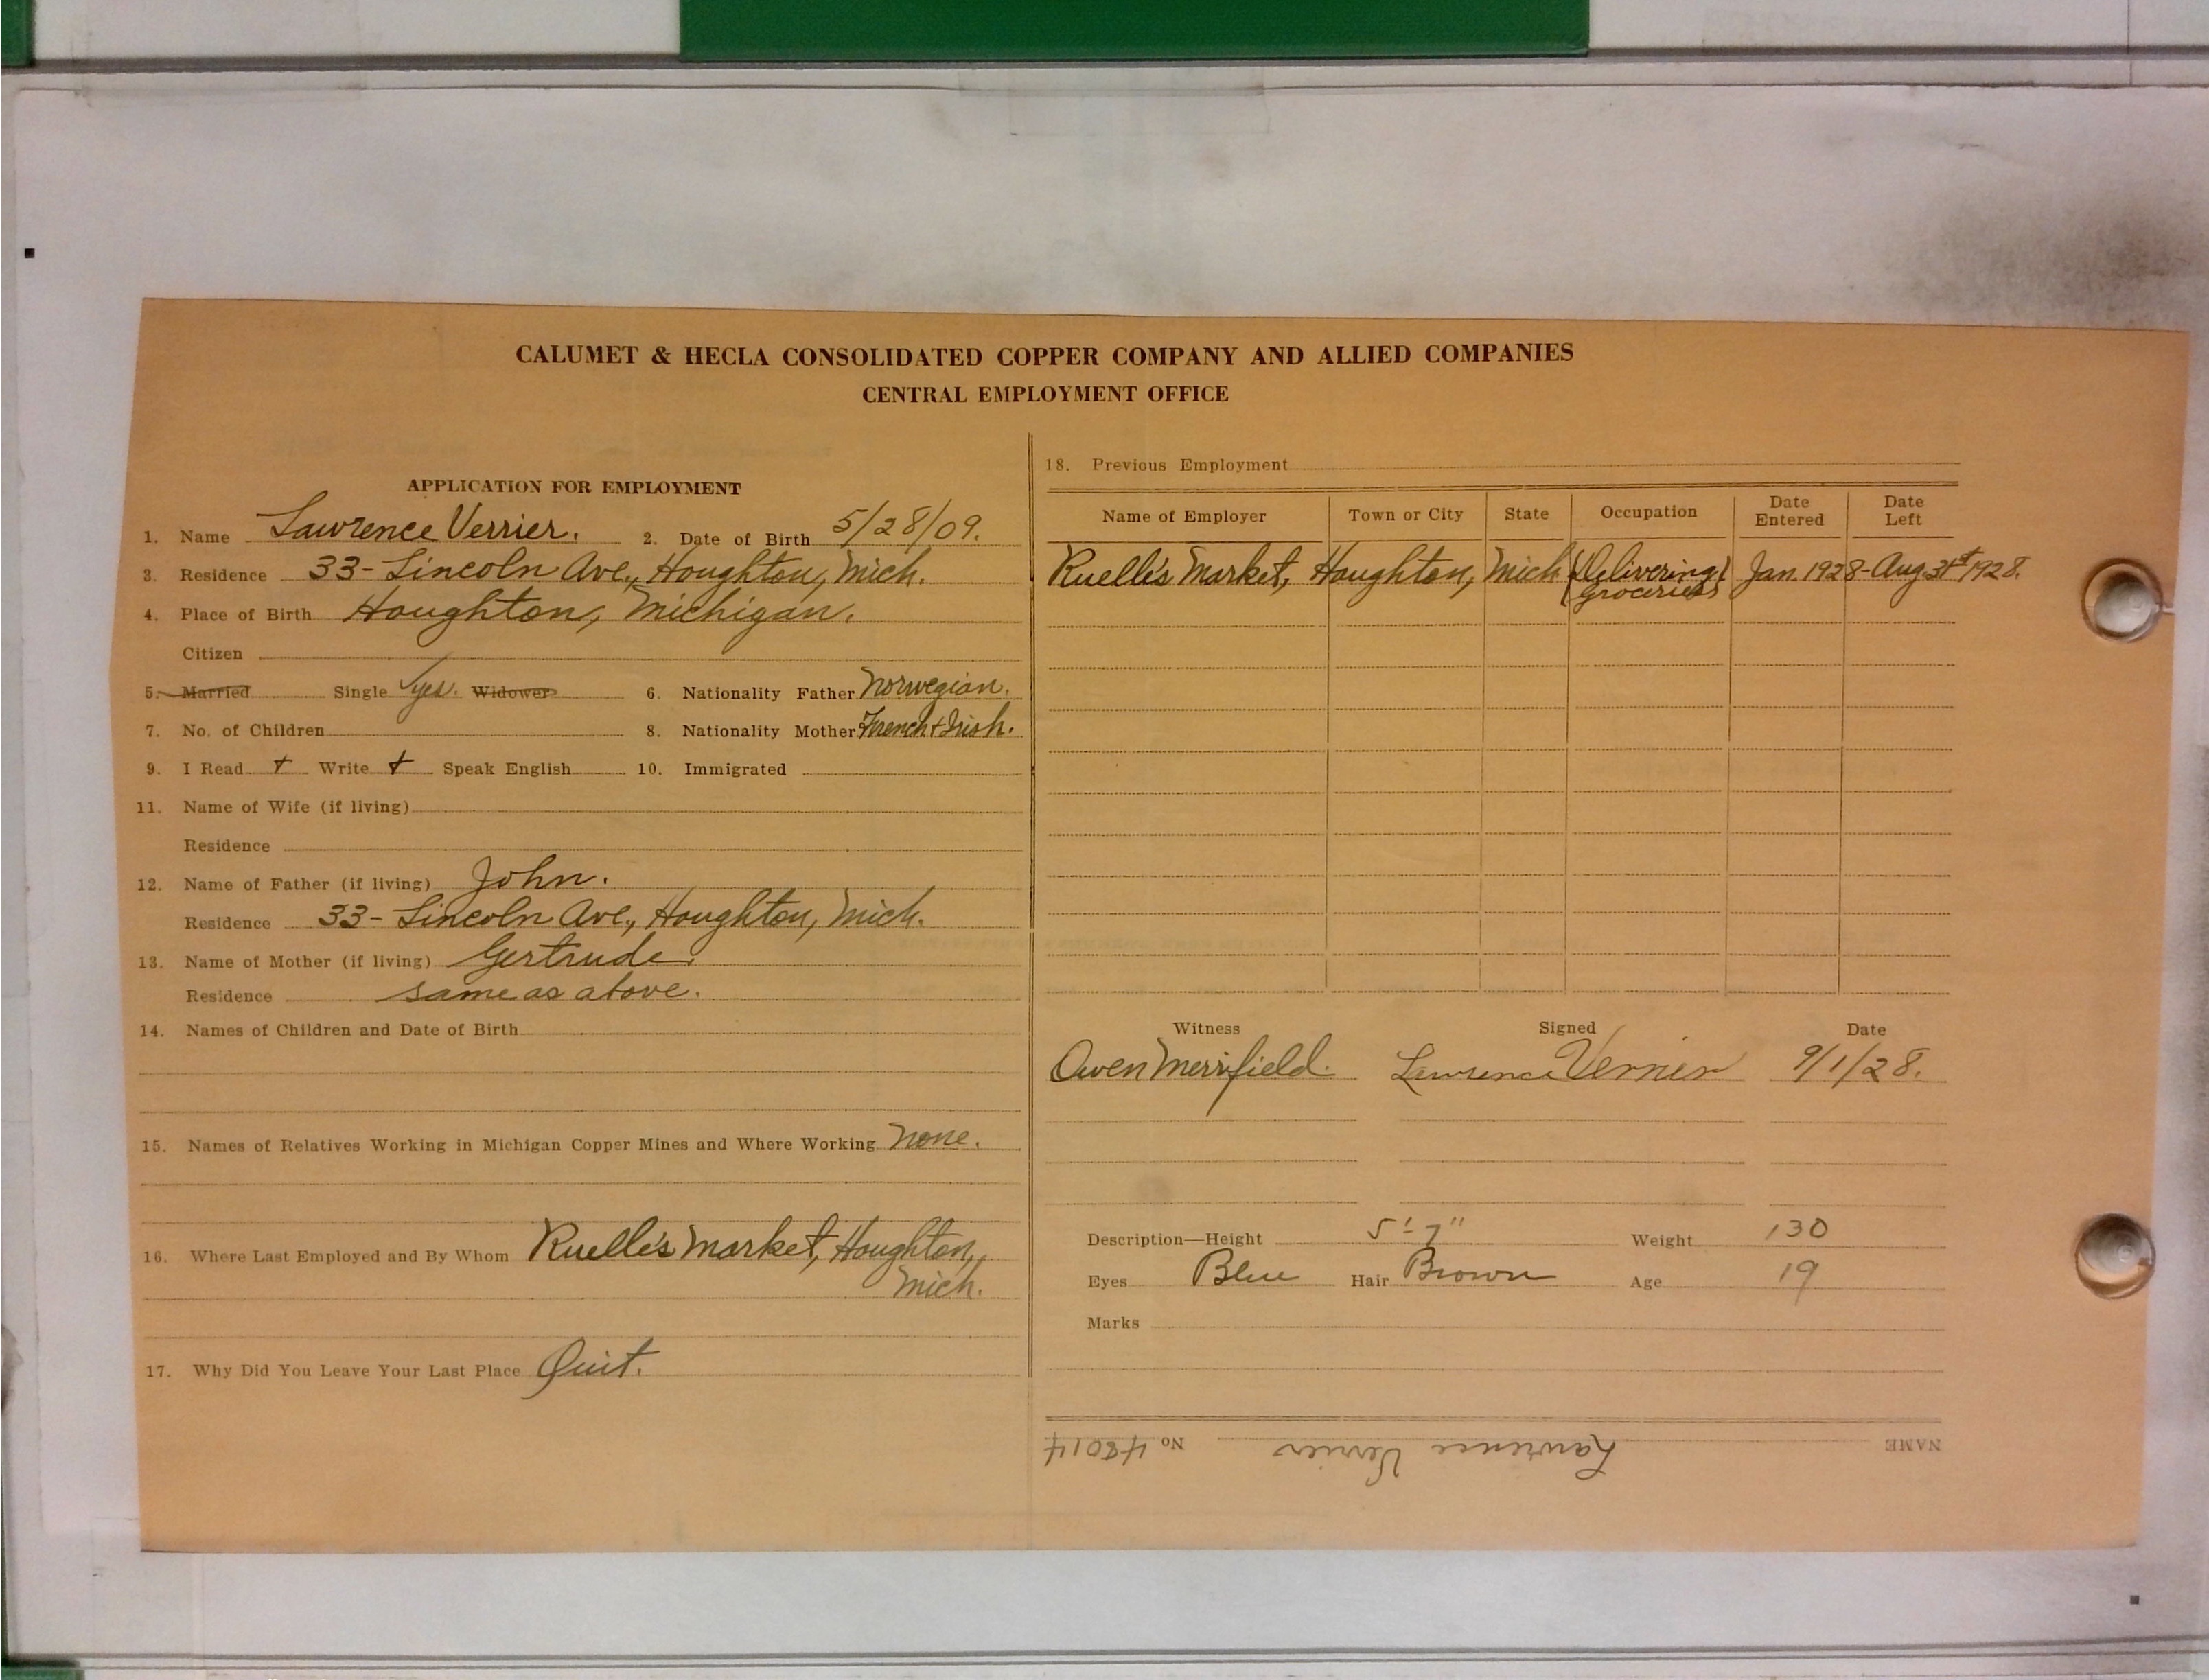 CALUMET & HECLA CONSOLIDATED COPPER COMPANY AND ALLIED COMPANIES
CENTRAL EMPLOYMENT OFFICE
APPLICATION FOR EMPLOYMENT
1. Name Lawrence Verrier. 2. Date of Birth 5/28/09.
3. Residence 33- Lincoln Ave., Houghton, Mich.
4. Place of Birth Houghton, Michigan.
Citizen
5. Married Single yes. Widower 6. Nationality Father Norwegian.
7. No. of Children 8. Nationality Mother French + Irish.
9. I Read + Write + Speak English 10. Immigrated
11. Name of Wife (if living)
Residence
12. Name of Father (if living) John.
Residence 33- Lincoln Ave., Houghton, Mich.
13. Name of Mother (if living) Gertrude.
Residence same as above.
14. Names of Children and Date of Birth
15. Names of Relatives Working in Michigan Copper Mines and Where Working None.
16. Where Last Employed and By Whom Ruelle's Market, Houghton,
Mich.
17. Why Did You Leave Your Last Place Quit.
18. Previous Employment
Name of Employer Town or City State Occupation Date Entered Date Left
Ruelle's Market, Houghton, Mich (Delivering Groceries) Jan. 1928 - Aug 31st 1928.
Witness Signed Date
Owen Merrifield. Lawrence Verrier 9/1/28.
Description—Height 5'-7" Weight 130
Eyes Blue Hair Brown Age 19
Marks
NAME Lawrence Verrier No 48014